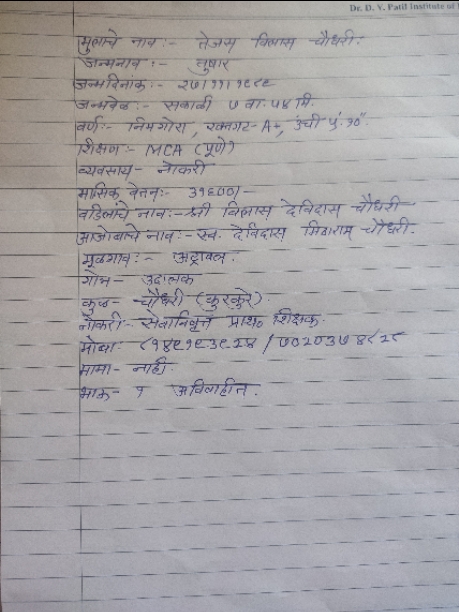 Dr. D. Y. Patil Institute of
मुलाचे नाव :- तेजस विलास चौधरी.
जन्मनाव :- तुषार
जन्मदिनांक:- २७।११।१९८९
जन्मवेळ:- सकाळी ७ वा. ५४ मि.
वर्ण:- निमगोरा, रक्तगट- A+, उंची ५'.१०"
शिक्षण:- MCA (पूणे)
व्यवसाय- नोकरी
मासिक वेतन:- ३१६००/-
वडिलांचे नाव:- श्री विलास देविदास चौधरी
आजोबाचे नाव:- स्व. देविदास मिठाराम चौधरी.
मूळगाव:- अट्रावल.
गोत्र- उदालक
कुळ- चौधरी (कुरकुरे).
नौकरी:- सेवानिवृत्त प्राथ० शिक्षक.
मोबा:
मामा- नाही.
भाऊ- १ अविवाहीत.